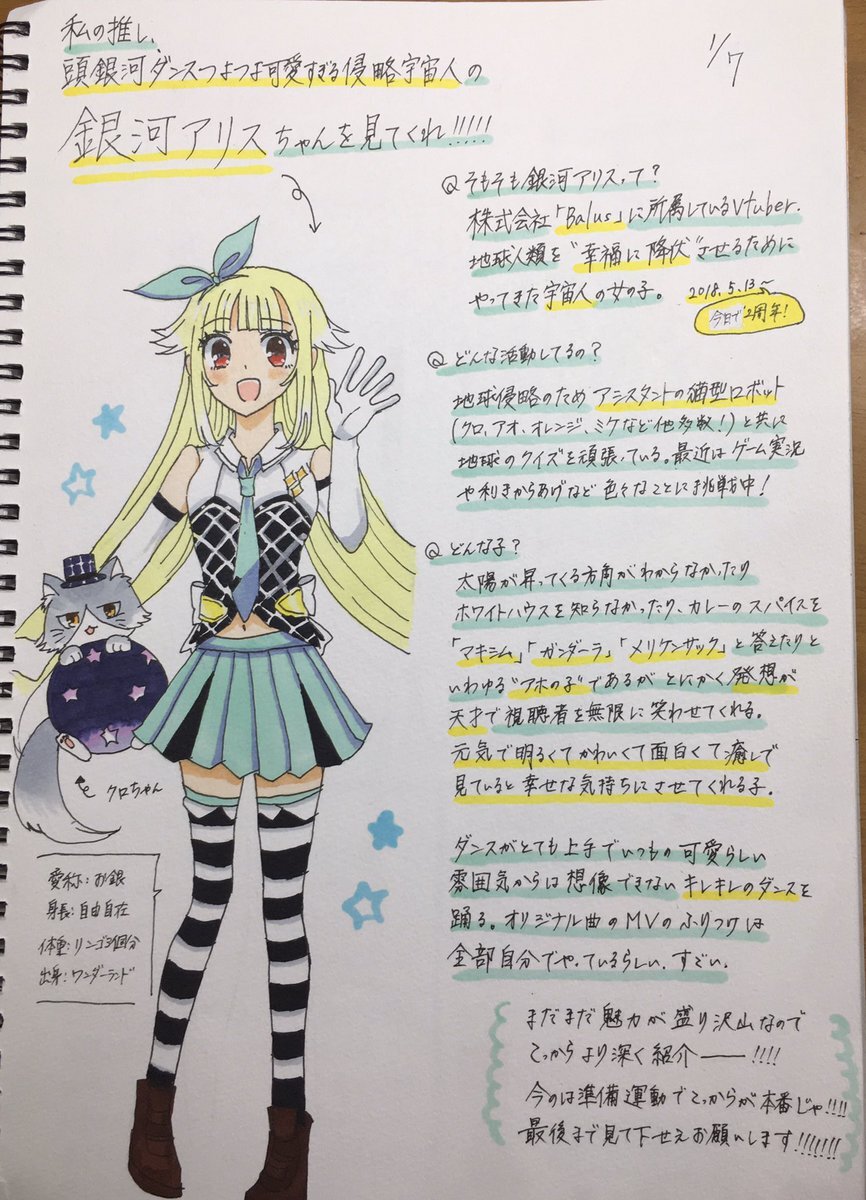 私の推し、
頭銀河ダンスつよつよ可愛すぎる侵略宇宙人の
銀河アリスちゃんを見てくれ!!!!!
1/7
Q そもそも銀河アリスって?
株式会社「Balus」に所属しているVtuber.
地球人類を"幸福に降伏"させるために
やってきた宇宙人の女の子。
2018.5.13〜
今日で2周年!
Q どんな活動してるの?
地球侵略のためアシスタントの猫型ロボット
(クロ、アオ、オレンジ、ミケなど他多数!)と共に
地球のクイズを頑張っている。最近はゲーム実況
や利きからあげなど色々なことに挑戦中!
Q どんな子?
太陽が昇ってくる方角がわからなかったり
ホワイトハウスを知らなかったり、カレーのスパイスを
「マキシム」「ガンダーラ」「メリケンサック」と答えたりと
いわゆる"アホの子"であるがとにかく発想が
天才で視聴者を無限に笑わせてくれる。
元気で明るくてかわいくて面白くて癒しで
見ていると幸せな気持ちにさせてくれる子.
ダンスがとても上手でいつもの可愛らしい
雰囲気からは想像できないキレキレのダンスを
踊る。オリジナル曲のMVのふりつけは
全部自分でやっているらしい.すごい.
クロちゃん
愛称:お銀
身長:自由自在
体重:リンゴ3個分
出身:ワンダーランド
まだまだ魅力が盛り沢山なので
こっからより深く紹介――!!!!
今のは準備運動でこっからが本番じゃ!!!!
最後まで見て下せえお願いします!!!!!!!